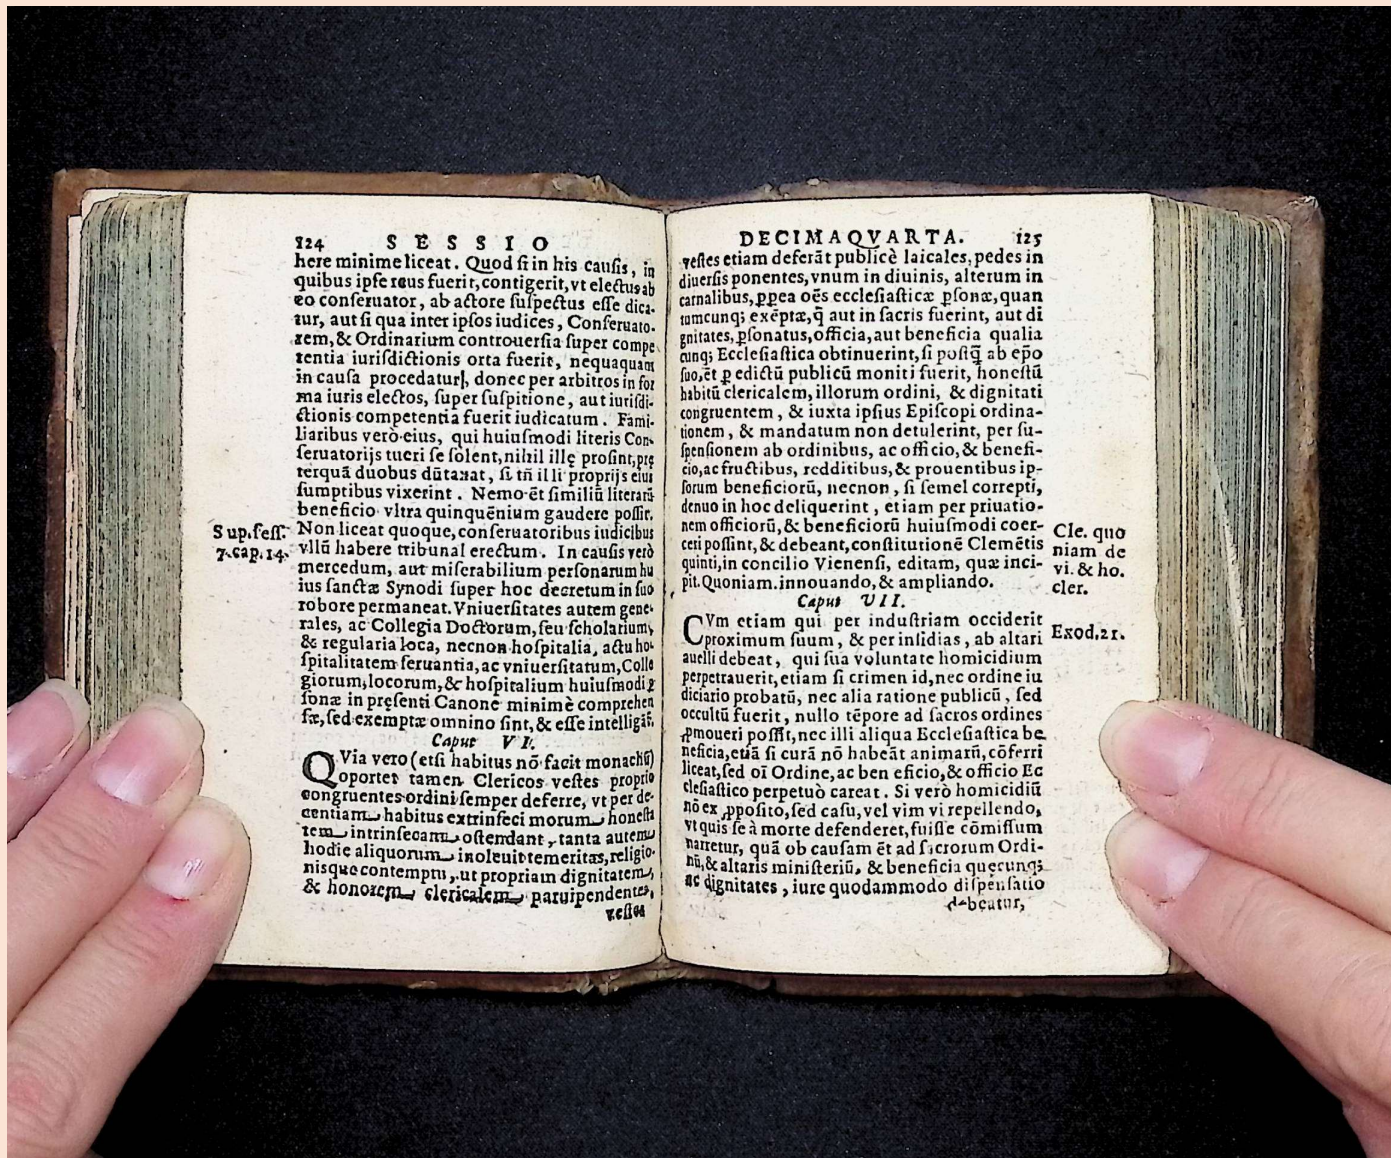 124 SESSIO
here minime liceat. Quod ſi in his cauſis, in
quibus ipſe reus fuerit, contigerit, vt electus ab
eo conſeruator, ab actore ſuſpectus eſſe dica-
tur, aut ſi qua inter ipſos iudices, Conſeruato-
rem, & Ordinarium controuerſia ſuper compe
tentia iuriſdictionis orta fuerit, nequaquam
in cauſa procedatur, donec per arbitros in for
ma iuris electos, ſuper ſuſpitione, aut iuriſdi-
ctionis competentia fuerit iudicatum. Fami-
liaribus verò eius, qui huiuſmodi literis Con-
ſeruatorijs tueri ſe ſolent, nihil illę proſint, prę
terquā duobus dūtaxat, ſi tñ illi proprijs eius
ſumptibus vixerint. Nemo ēt ſimiliū literarū
beneficio vltra quinquēnium gaudere poſſit.
Sup. ſeſſ.
7. cap. 14.
Non liceat quoque, conſeruatoribus iudicibus
vllū habere tribunal erectum. In cauſis verò
mercedum, aut miſerabilium perſonarum hu
ius ſanctæ Synodi ſuper hoc decretum in ſuo
robore permaneat. Vniuerſitates autem gene-
rales, ac Collegia Doctorum, ſeu ſcholarium,
& regularia loca, necnon hoſpitalia, actu ho-
ſpitalitatem ſeruantia, ac vniuerſitatum, Colle
giorum, locorum, & hoſpitalium huiuſmodi ꝑ
ſonæ in pręſenti Canone minimè comprehen
ſæ, ſed exemptæ omnino ſint, & eſſe intelligāt.
Caput VI.
QVia vero (etſi habitus nō facit monachū)
oportet tamen Clericos veſtes proprio
congruentes ordini ſemper deferre, vt per de-
centiam habitus extrinſeci morum honeſta
tem intrinſecam oſtendant, tanta autem
hodie aliquorum inoleuit temeritas, religio-
nisque contemptu, ut propriam dignitatem,
& honorem clericalem paruipendentes,
veſtes
DECIMAQVARTA. 125
veſtes etiam deferāt publicè laicales, pedes in
diuerſis ponentes, vnum in diuinis, alterum in
carnalibus, ꝓpea oēs eccleſiaſticæ ꝑſonæ, quan
tumcunq; exēptæ, q̄ aut in ſacris fuerint, aut di
gnitates, ꝑſonatus, officia, aut beneficia qualia
cunq; Eccleſiaſtica obtinuerint, ſi poſtq̄ ab ep̄o
ſuo, ēt ꝑ edictū publicū moniti fuerint, honeſtū
habitū clericalem, illorum ordini, & dignitati
congruentem, & iuxta ipſius Epiſcopi ordina-
tionem, & mandatum non detulerint, per ſu-
ſpenſionem ab ordinibus, ac officio, & benefi-
cio, ac fructibus, redditibus, & prouentibus ip-
ſorum beneficiorū, necnon, ſi ſemel correpti,
denuo in hoc deliquerint, etiam per priuatio-
nem officiorū, & beneficiorū huiuſmodi coer-
ceri poſſint, & debeant, conſtitutionē Clemētis
quinti, in concilio Vienenſi, editam, quæ inci-
pit. Quoniam. innouando, & ampliando.
Cle. quo
niam de
vi. & ho.
cler.
Caput VII.
CVm etiam qui per induſtriam occiderit
proximum ſuum, & per inſidias, ab altari
Exod. 21.
auelli debeat, qui ſua voluntate homicidium
perpetrauerit, etiam ſi crimen id, nec ordine iu
diciario probatū, nec alia ratione publicū, ſed
occultū fuerit, nullo tēpore ad ſacros ordines
ꝓmoueri poſſit, nec illi aliqua Eccleſiaſtica be
neficia, etiā ſi curā nō habeāt animarū, cōferri
liceat, ſed oī Ordine, ac ben eficio, & officio Ec
cleſiaſtico perpetuò careat. Si verò homicidiū
nō ex ꝓpoſito, ſed caſu, vel vim vi repellendo,
vt quis ſe à morte defenderet, fuiſſe cōmiſſum
narretur, quā ob cauſam ēt ad ſacrorum Ordi-
nū, & altaris miniſteriū, & beneficia quęcunq;
ac dignitates, iure quodammodo diſpenſatio
debeatur,